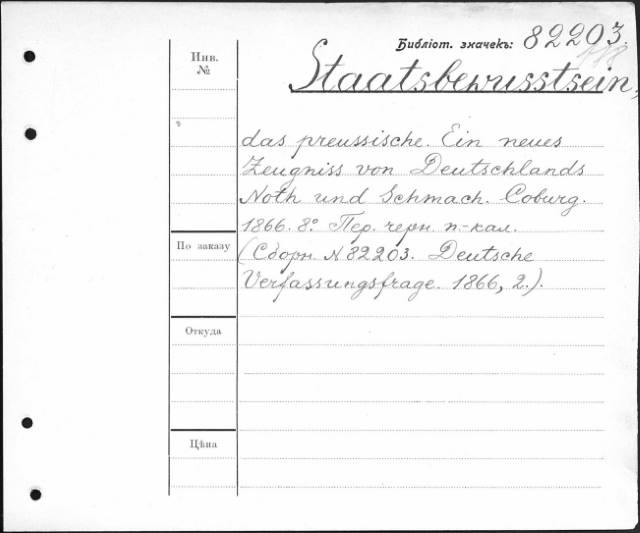 Библіот. значекъ: 82203.
Инв.
№
Staatsbewusstsein,
das preussische. Ein neues
Zeugniss von Deutschlands
Noth und Schmach. Coburg.
1866. 8° Пер. черн. п.-кал.
По заказу
(Сборн. N 82203. Deutsche
Verfassungsfrage. 1866, 2.).
Откуда
Цѣна